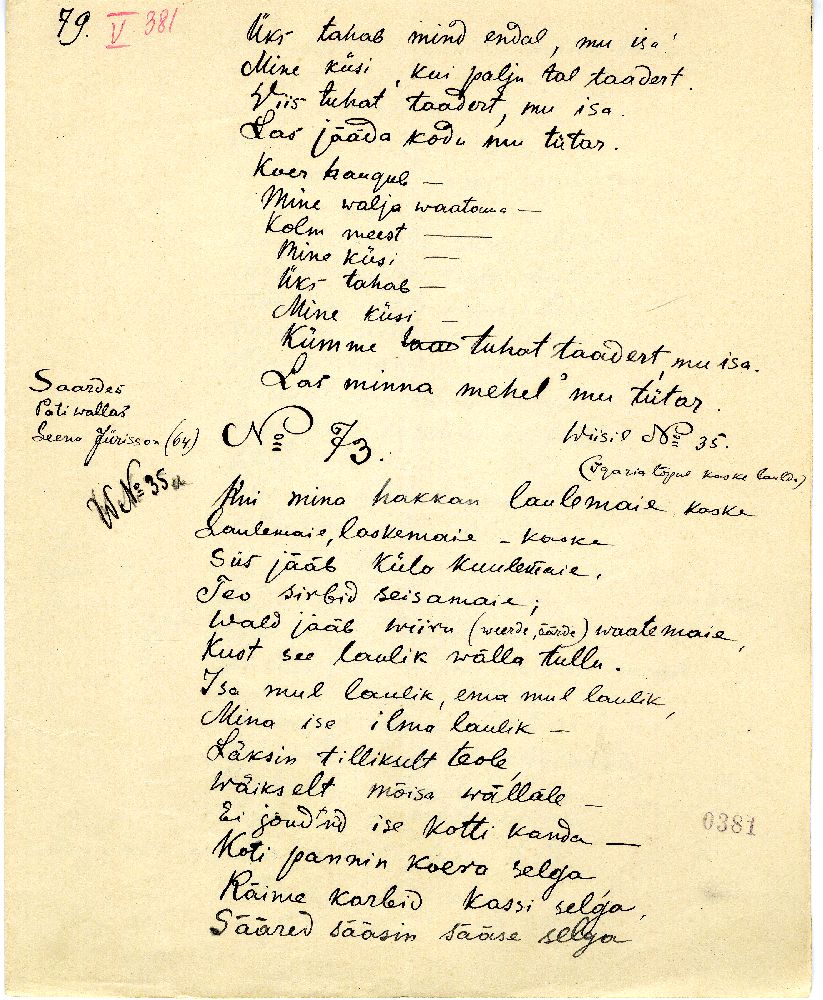 79. V 381
Üks tahab mind endal, mu isa!
Mine küsi, kui palju tal taadert.
Viis tuhat taadert, mu isa.
Las jääda kodu mu tütar.
Koer haugub —
Mine walja waatama —
Kolm meest —
Mine küsi —
Üks tahab —
Mine küsi —
Kümme tuhat taadert, mu isa.
Las minna mehel' mu tütar.
Saardes
Pati wallas
Leena Jürisson (64)
No 73.
Wiisil No 35.
(Igaria lõpul kaske laulda)
W No 35a
Kui mina hakkan laulemaie, kaske
Laulemaie, laskemaie - kaske
Siis jääb küla kuulemaie,
Teo sirbid seisamaie;
Wald jääb wiiru (weerde, äärde) waatemaie,
Kust see laulik wälla tullu.
Isa mul laulik, ema mul laulik,
Mina ise ilma laulik —
Läksin tillikselt teole,
Wäikselt mõisa wällale —
Ei jõud'nd ise kotti kanda —
Koti pannin koera selga
Räime karbid kassi selga,
Sääred sääsin sääse selga
0381